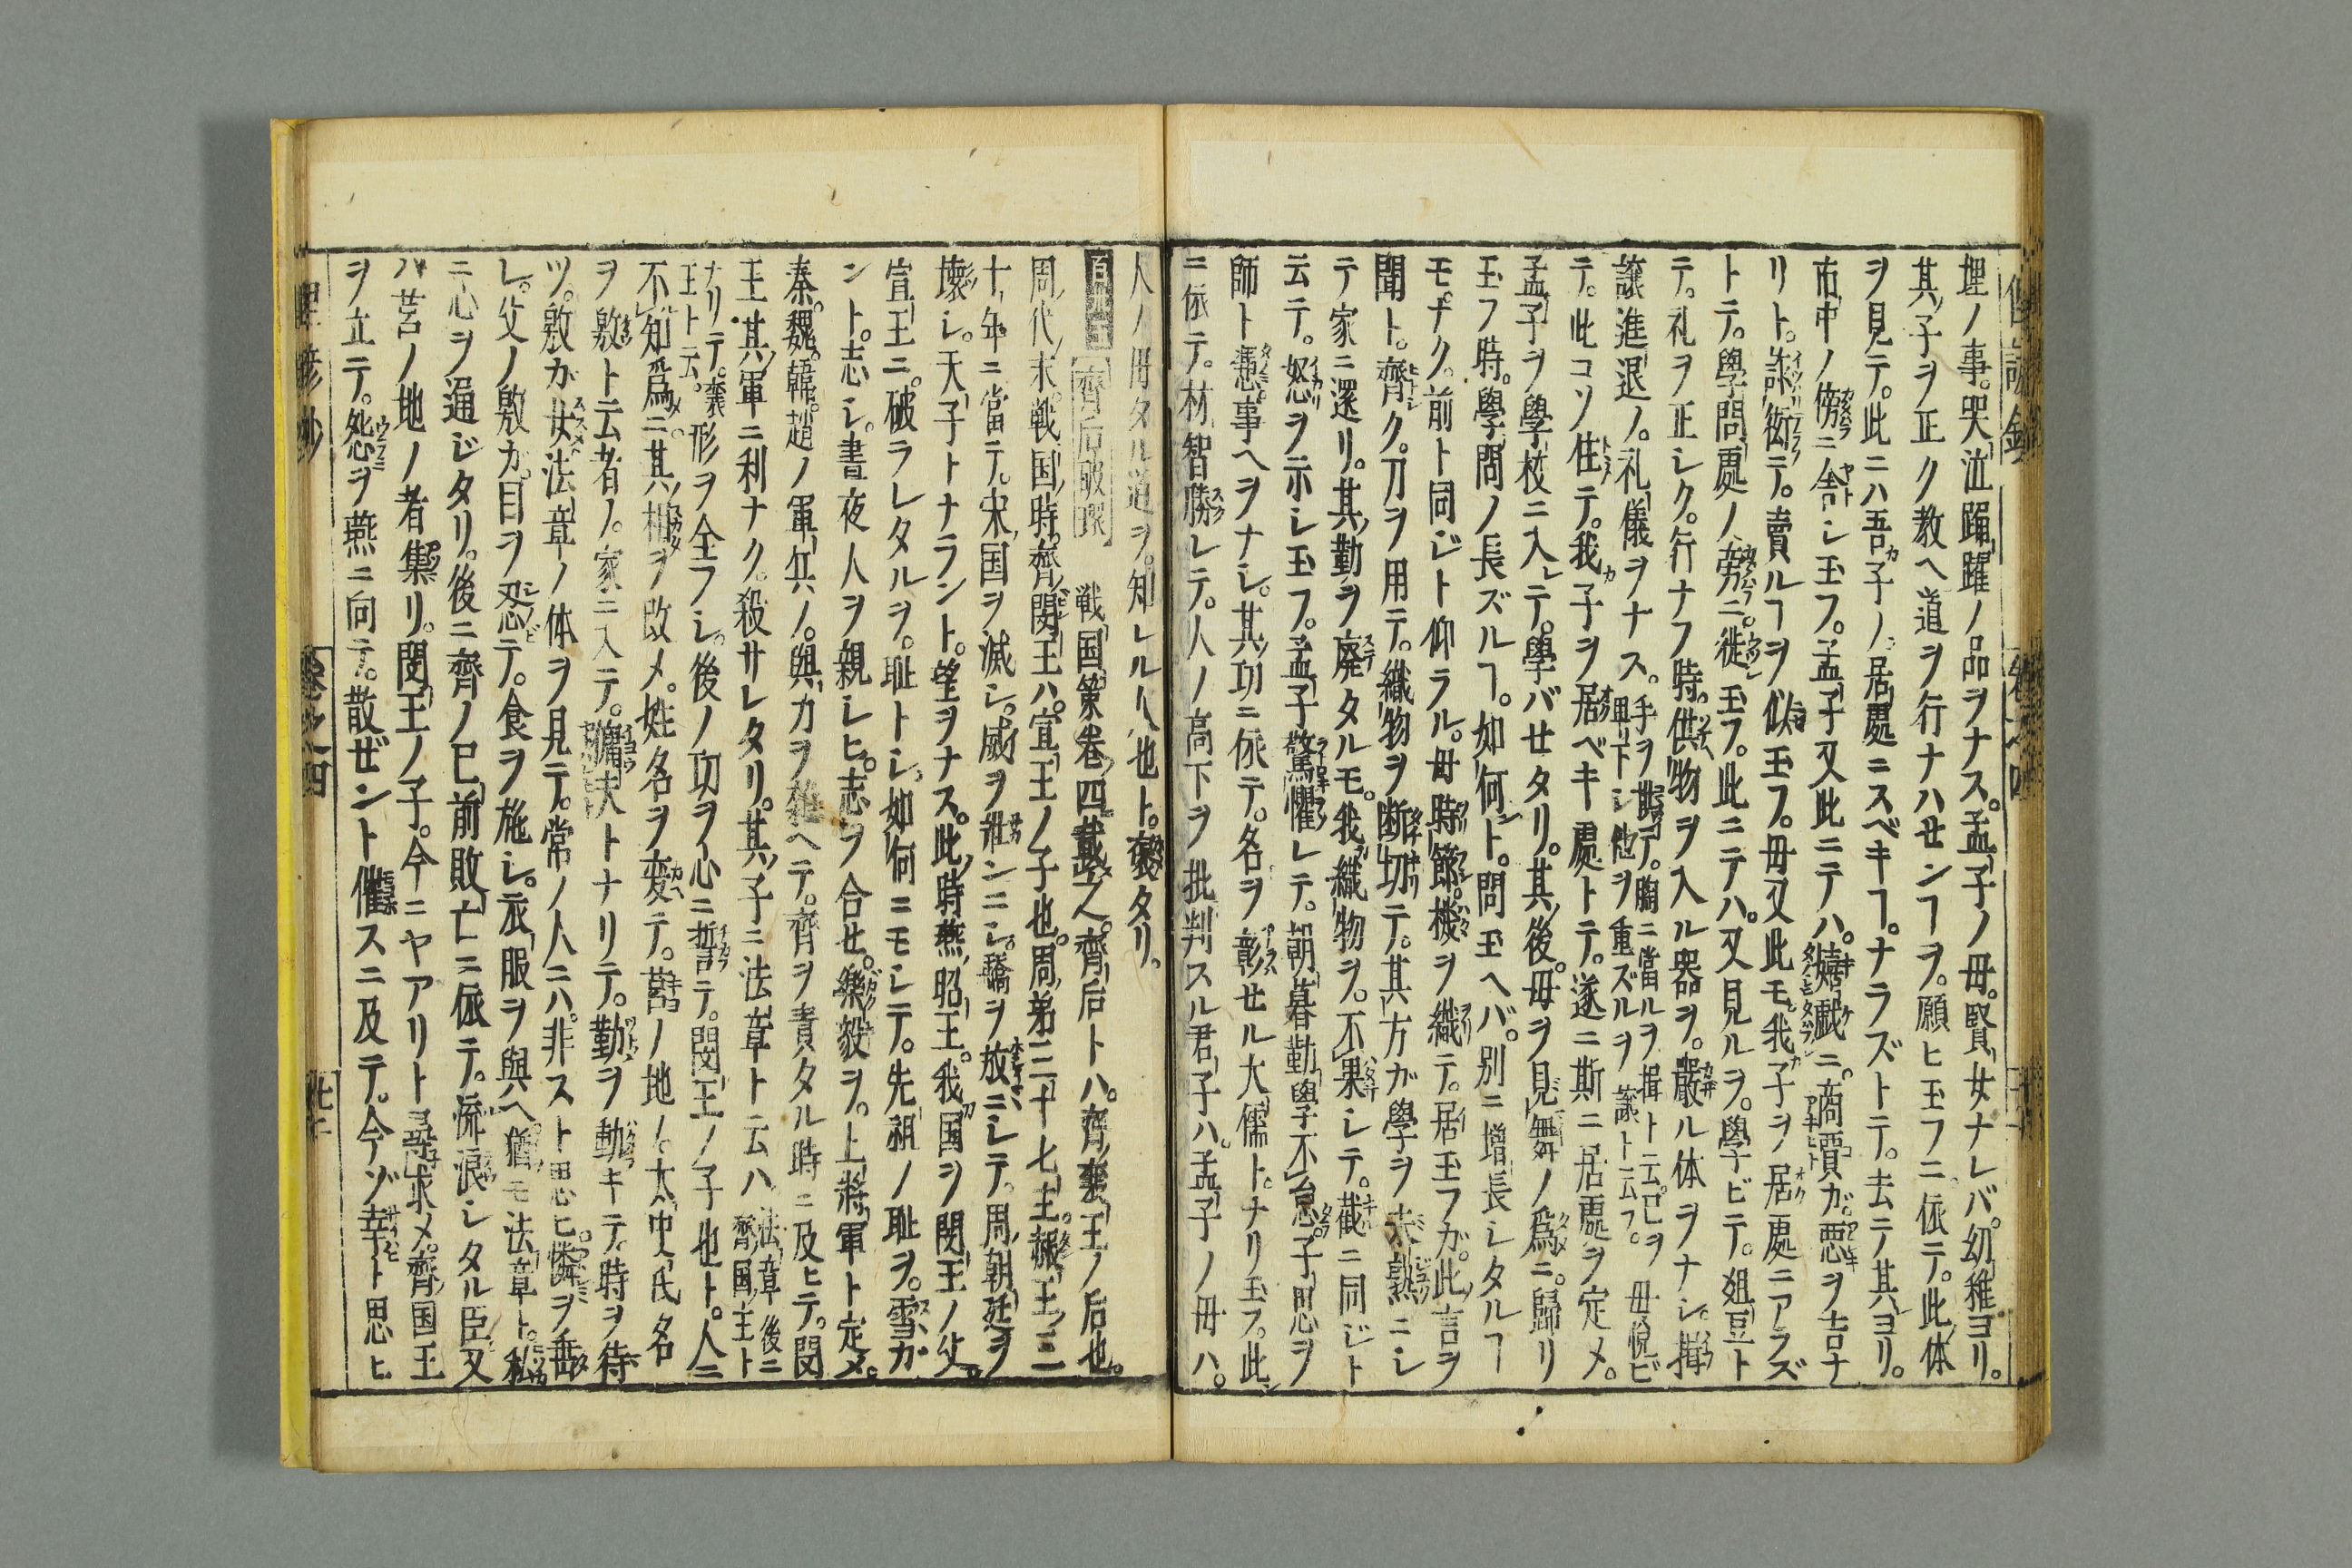 埋ノ事。哭泣踊躍ノ品ヲナス。孟子ノ母。賢女ナレバ。幼稚ヨリ。
其子ヲ正ク教ヘ道ヲ行ナハセンヿヲ。願ヒ玉フニ依テ。此体
ヲ見テ。此ニハ吾子ノ居處ニスベキヿ。ナラズトテ。去テ其ヨリ。
市中ノ傍ニ舎シ玉フ。孟子又此ニテハ。嬉戯ニ。商賈ガ。悪ヲ吉ナ
リト。詠衒テ。賣ルヿヲ似玉フ。母又此モ我子ヲ居處ニアラズ
トテ。學問處ノ旁ニ。徙玉フ。此ニテハ。又見ルヲ。學ビテ。爼豆ト
テ。礼ヲ正シク。行ナフ時。供物ヲ入ル器ヲ。嚴ル体ヲナシ。揖
譲進退ノ。礼儀ヲナス。手ヲ散テ。胸ニ當ルヲ揖ト云。已ヲ卑下シ他ヲ重ズルヲ譲ト云フ。母悦ビ
テ。此コソ住テ。我子ヲ居ベキ處トテ。遂ニ斯ニ居處ヲ定メ。
孟子ヲ學校ニ入テ。學バセタリ。其後。母ヲ見舞ノ爲ニ。歸リ
玉フ時。學問ノ長ズルヿ。如何ント。問玉ヘバ。別ニ增長シタルヿ
モナク。前ト同ジト仰ラル。母時節。機ヲ織テ。居玉フガ。此言ヲ
聞ト。齊ク。刀ヲ用テ。織物ヲ断切テ。其方ガ學ヲ未熟ニシ
テ家ニ還リ。其勤ヲ廃タルモ。我織物ヲ。不果シテ。截ニ同ジト
云テ。怒ヲ示シ玉フ。孟子驚懼レテ。朝暮勤學不怠。子思ヲ
師ト憑事ヘヲナシ。其功ニ依テ。名ヲ彰セル大儒ト。ナリ玉フ。此
ニ依テ。材智勝レテ。人ノ高下ヲ批判スル君子ハ。孟子ノ母ハ。
人ノ母タル道ヲ。知レル人也ト。襃タリ。
齊后破環 戦国策卷四載之。齊后トハ。齊襄王ノ后也。
周代末。戦国時。齊閔王ハ。宣王ノ子也。周弟三十七主。赧王三
十年ニ當テ。宋国ヲ滅シ。威ヲ雄ンニシ。驕ヲ放ニシテ。周朝廷ヲ
壊シ。天子トナラント。望ヲナス。此時燕昭王。我国ヲ閔王ノ父。
宣王ニ。破ラレタルヲ。耻トシ。如何ニモシテ。先祖ノ耻ヲ。雪カ
ント。志シ。晝夜人ヲ親シヒ。志ヲ合セ。樂毅ヲ。上將軍ト定メ。
秦。魏。韓。趙ノ軍兵ノ。與力ヲ雑ヘテ。齊ヲ責タル時ニ及ヒテ。閔
王其軍ニ利ナク。殺サレタリ。其子ニ法章ト云ハ法章後ニ齊国主ト
ナリテ。襄王ト云。形ヲ全フシ。後ノ功ヲ心ニ誓テ。閔王ノ子也ト。人ニ
不知爲ニ。其相ヲ改メ。姓名ヲ変テ。莒ノ地ノ。太史氏名
ヲ敫ト云者ノ。家ニ入テ。傭夫トナリテ。勤ヲ動キテ。時ヲ待
ツ。敫カ女法章ノ体ヲ見テ。常ノ人ニハ。非スト思ヒ。憐ヲ垂
レ。父ノ敫カ。目ヲ忍テ。食ヲ施シ。衣服ヲ與ヘ。猶モ法章ト。私
ニ心ヲ通ジタリ。後ニ齊ノ已前敗亡ニ依テ。流浪シタル臣又
ハ莒ノ地ノ者集リ。閔王ノ子。今ニヤアリト尋求メ。齊国王
ヲ立テ。怨ヲ燕ニ向テ。散ゼント催スニ及テ。今ゾ幸ト思ヒ